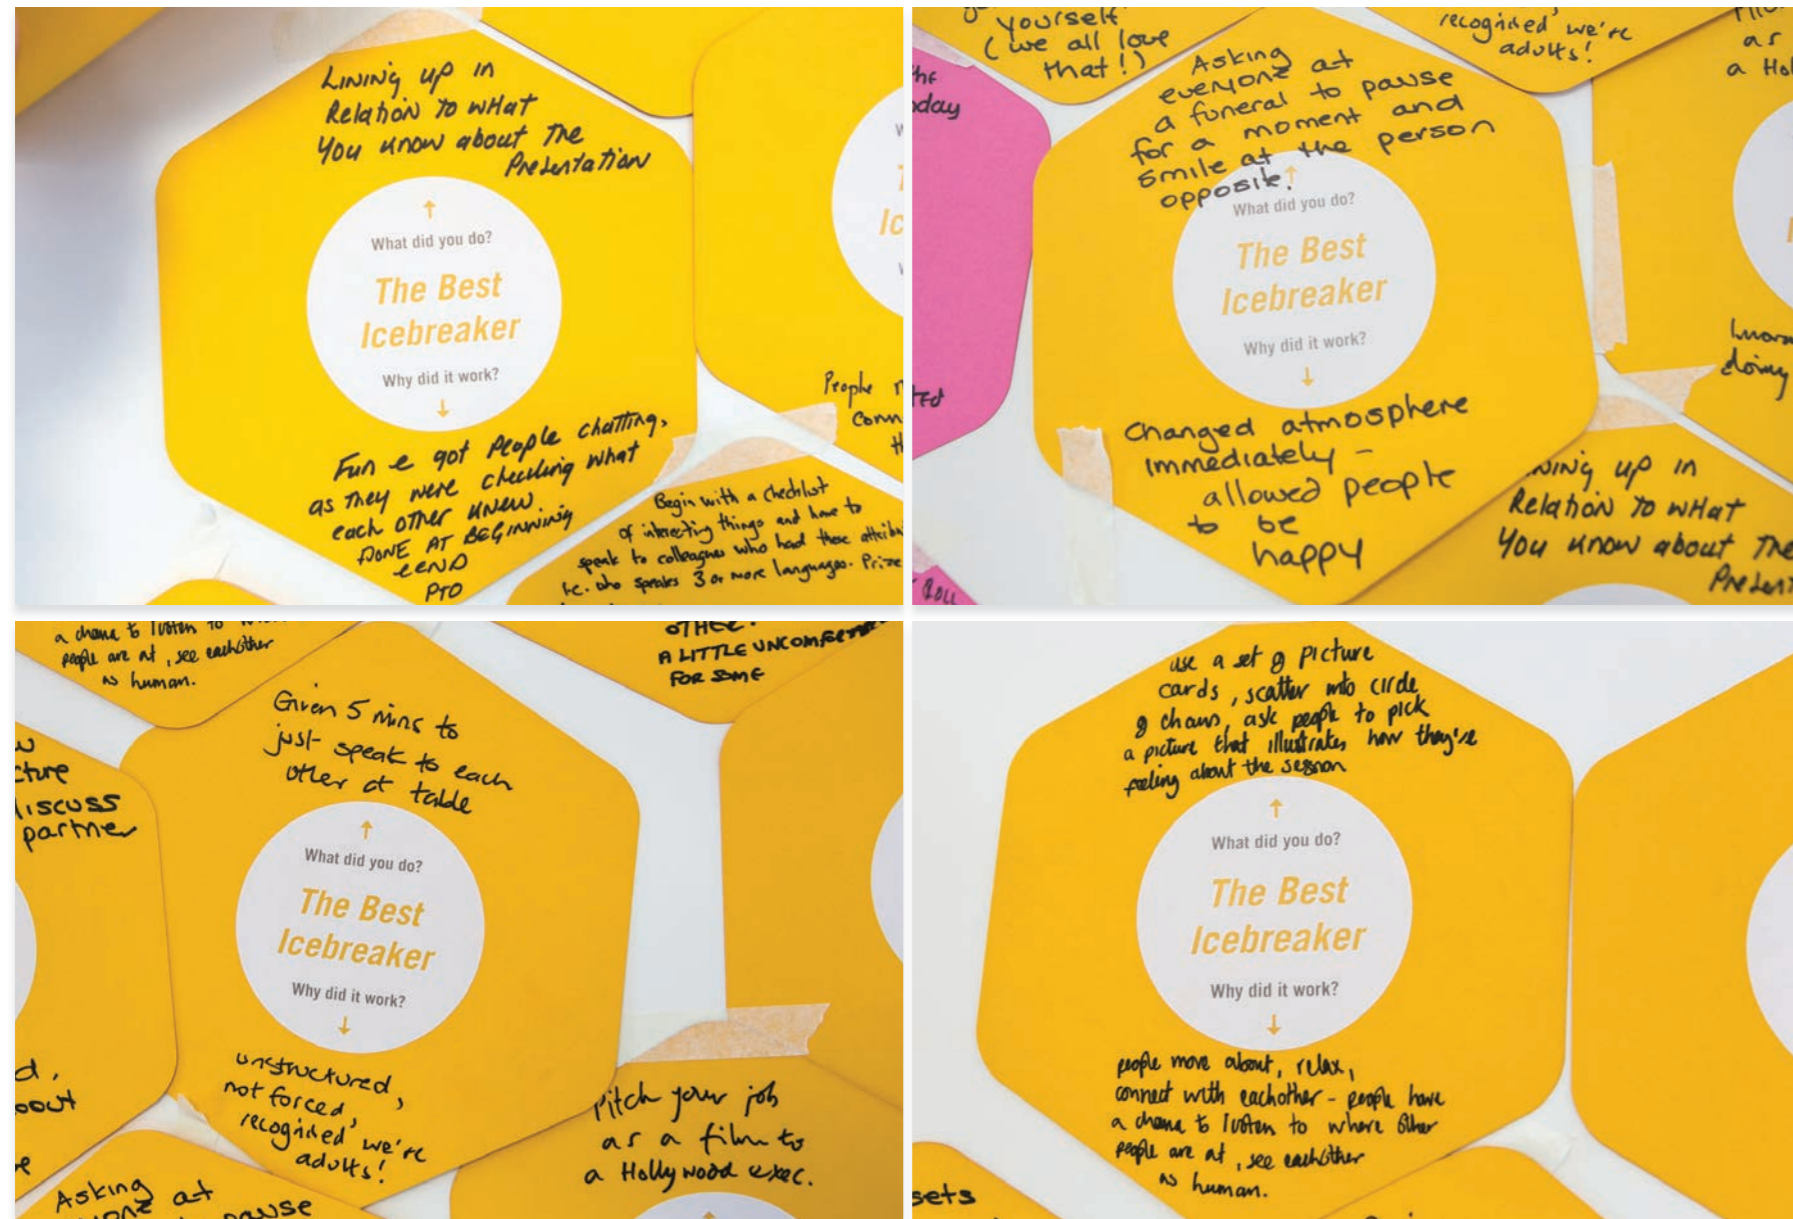 Lining up in
Relation to what
You know about the
Presentation
What did you do?
The Best
Icebreaker
Why did it work?
Fun & got People chatting,
as they were checking what
each other knew
Done at Beginning
& END
PTO
Ic
People
Conn
Begin with a checklist
of interesting things and have to
speak to colleagues who had these
i.e. who speaks 3 or more languages. Prize
yourself
(we all love
that!)
recognised we're
adults!
as
a Hol
oday
Asking
everyone at
a funeral to pause
for a moment and
smile at the person
opposite.
What did you do?
The Best
Icebreaker
Why did it work?
Changed atmosphere
immediately -
allowed people
to be
happy
doing
ning up in
Relation to what
You know about The
Present
a chance to listen to
people are at, see eachother
as human.
OTHER.
A LITTLE UNCOMFORTABLE
FOR SOME
cture
iscuss
partner
Given 5 mins to
just speak to each
other at table
What did you do?
The Best
Icebreaker
Why did it work?
unstructured,
not forced,
recognised we're
adults!
d,
bout
Pitch your job
as a film to
a Hollywood exec.
Asking
yone at
pause
use a set of picture
cards, scatter into circle
of chairs, ask people to pick
a picture that illustrates how they're
feeling about the session
What did you do?
The Best
Icebreaker
Why did it work?
people move about, relax,
connect with eachother - people have
a chance to listen to where other
people are at, see eachother
as human.
sets